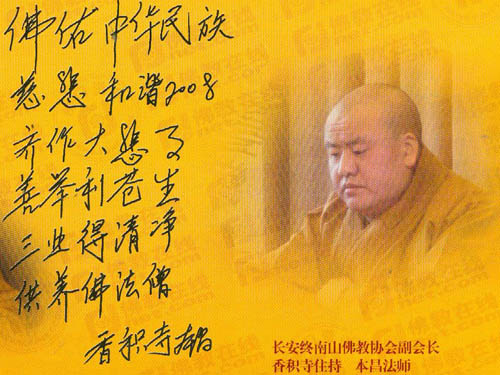 佛佑中华民族
慈悲和谐2008
齐作大悲事
善举利苍生
三业得清净
供养佛法僧
香积寺本昌
长安终南山佛教协会副会长
香积寺住持 本昌法师